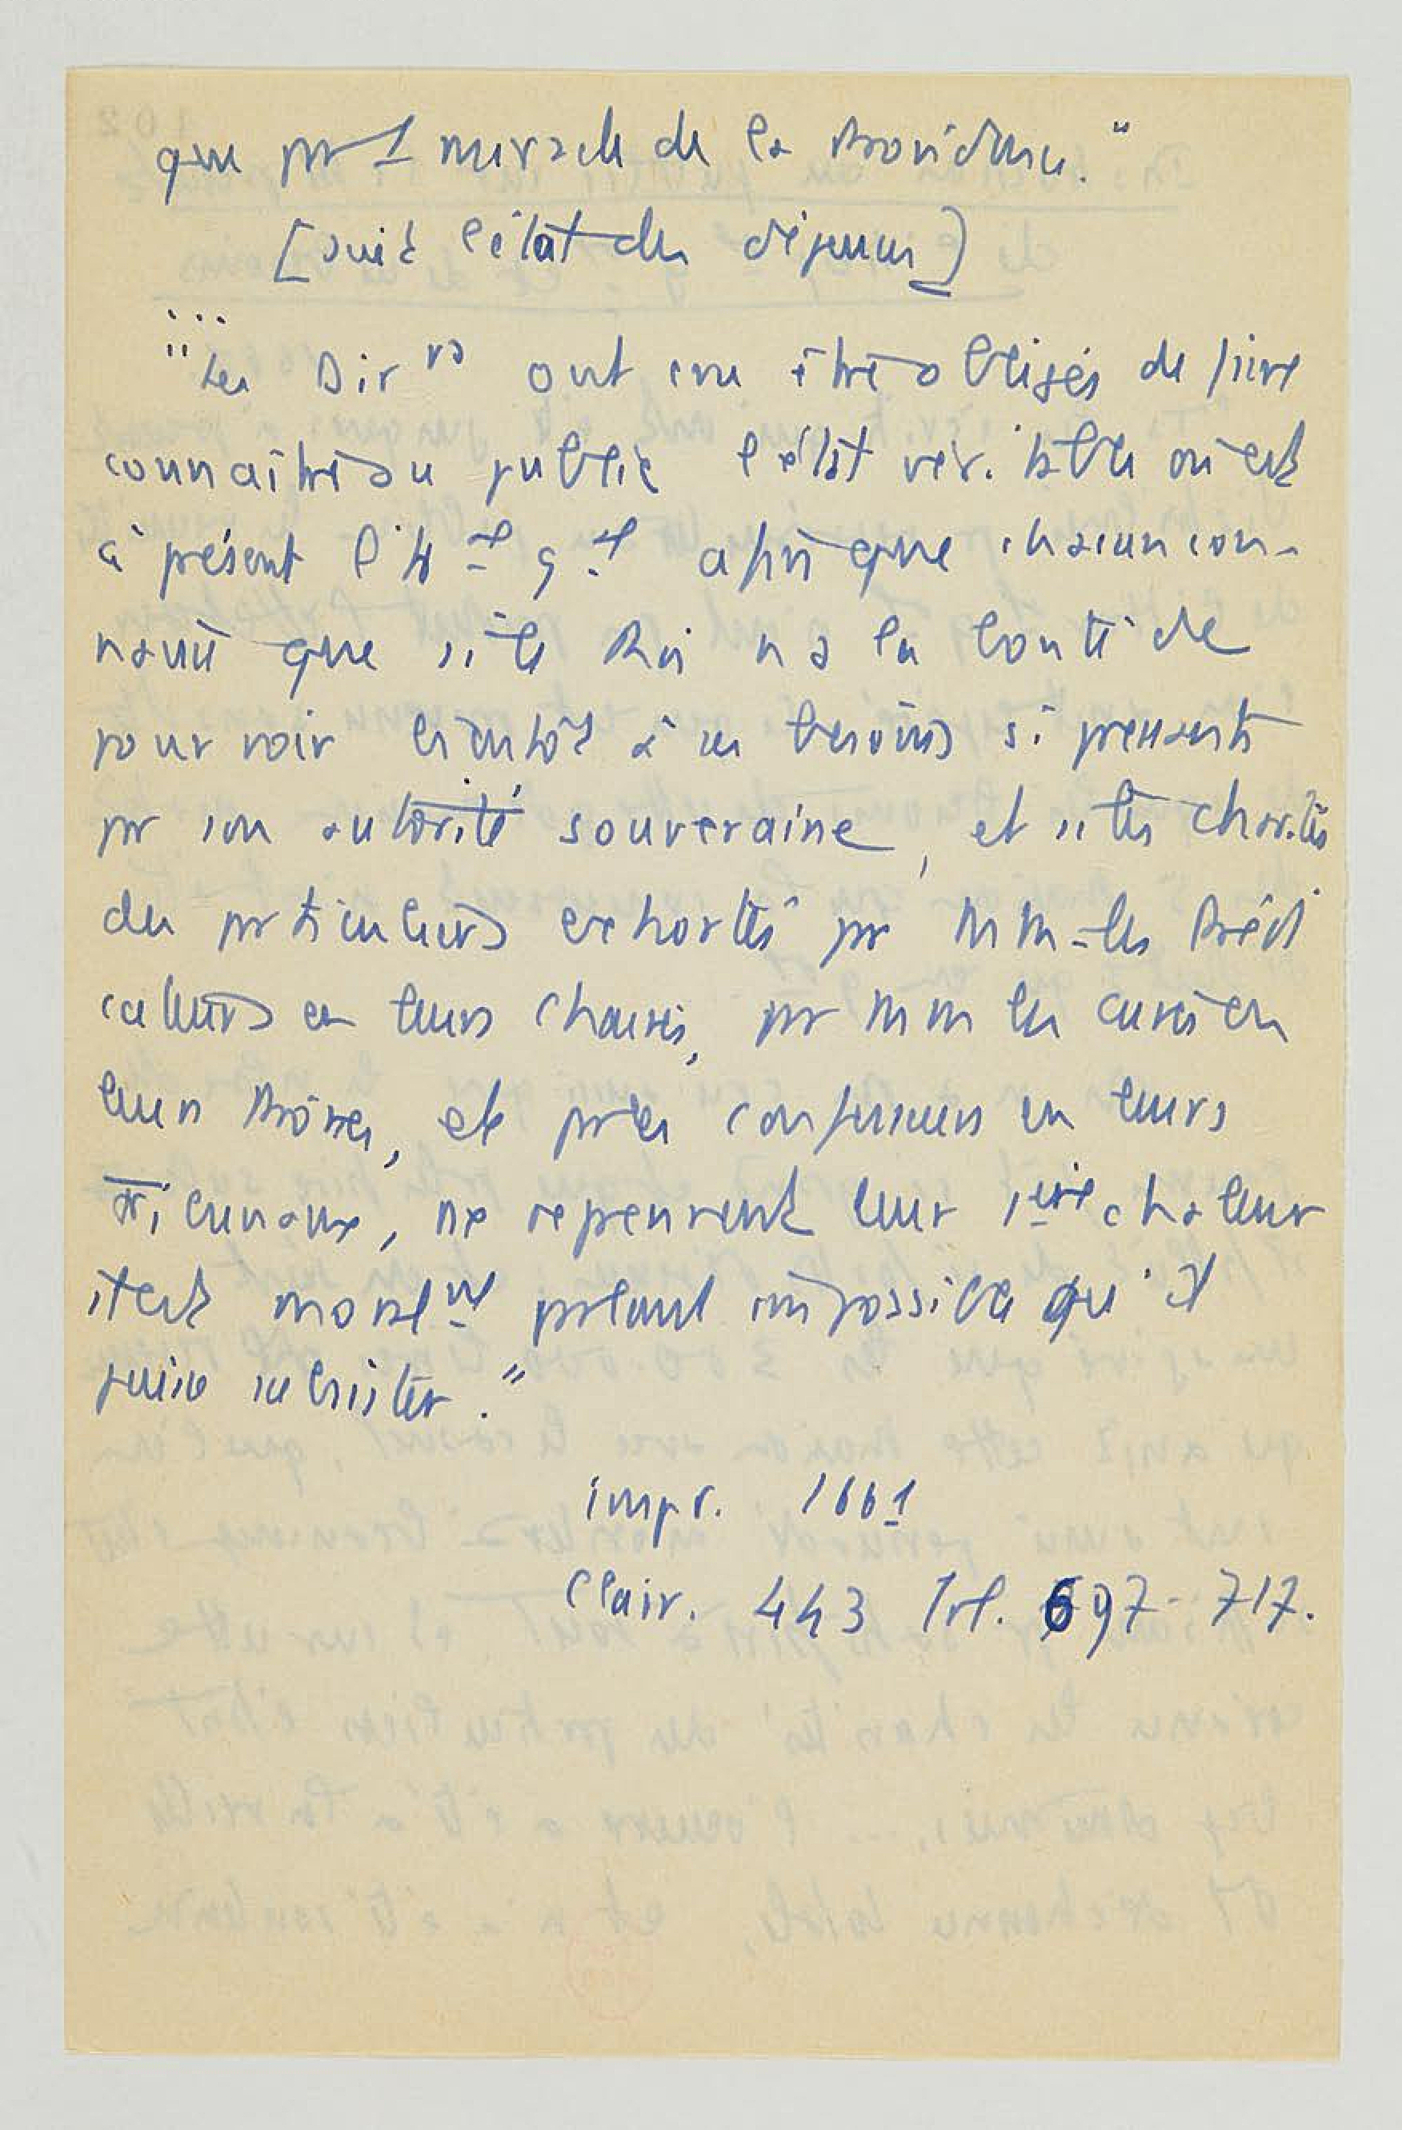 que pr 1 miracle de la Providence."
[suit l'état des dépenses]
...
"Les Dirrs ont cru être obligés de faire
connaître au public l'état véritable où est
à présent l'Hal gal afin que chacun con-
naisse que si le Roi n'a la bonté de
pourvoir bientôt à ses besoins si pressants
pr son autorité souveraine, et si les charités
des prticuliers exhortés pr MM les Prédi
cateurs en leurs chaires, pr MM les curés en
leurs Prônes, et pr les confesseurs en leurs
tribunaux, ne reprennent leur 1ère chaleur
il est moralnt prtant impossible qu'il
puisse subsister."
impr. 1661
Clair. 443 fol. 697-717.